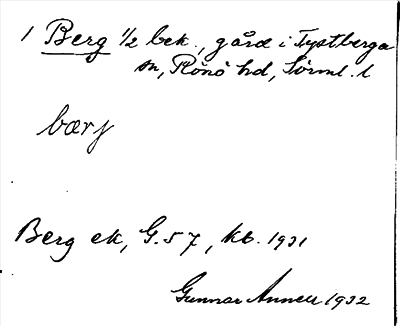 1 Berg 1/2 bek., gård i Tystberga
sn, Rönö hd, Sörml. l
bærj
Berg ek, G.57, kb. 1931
Gunnar Annell 1932